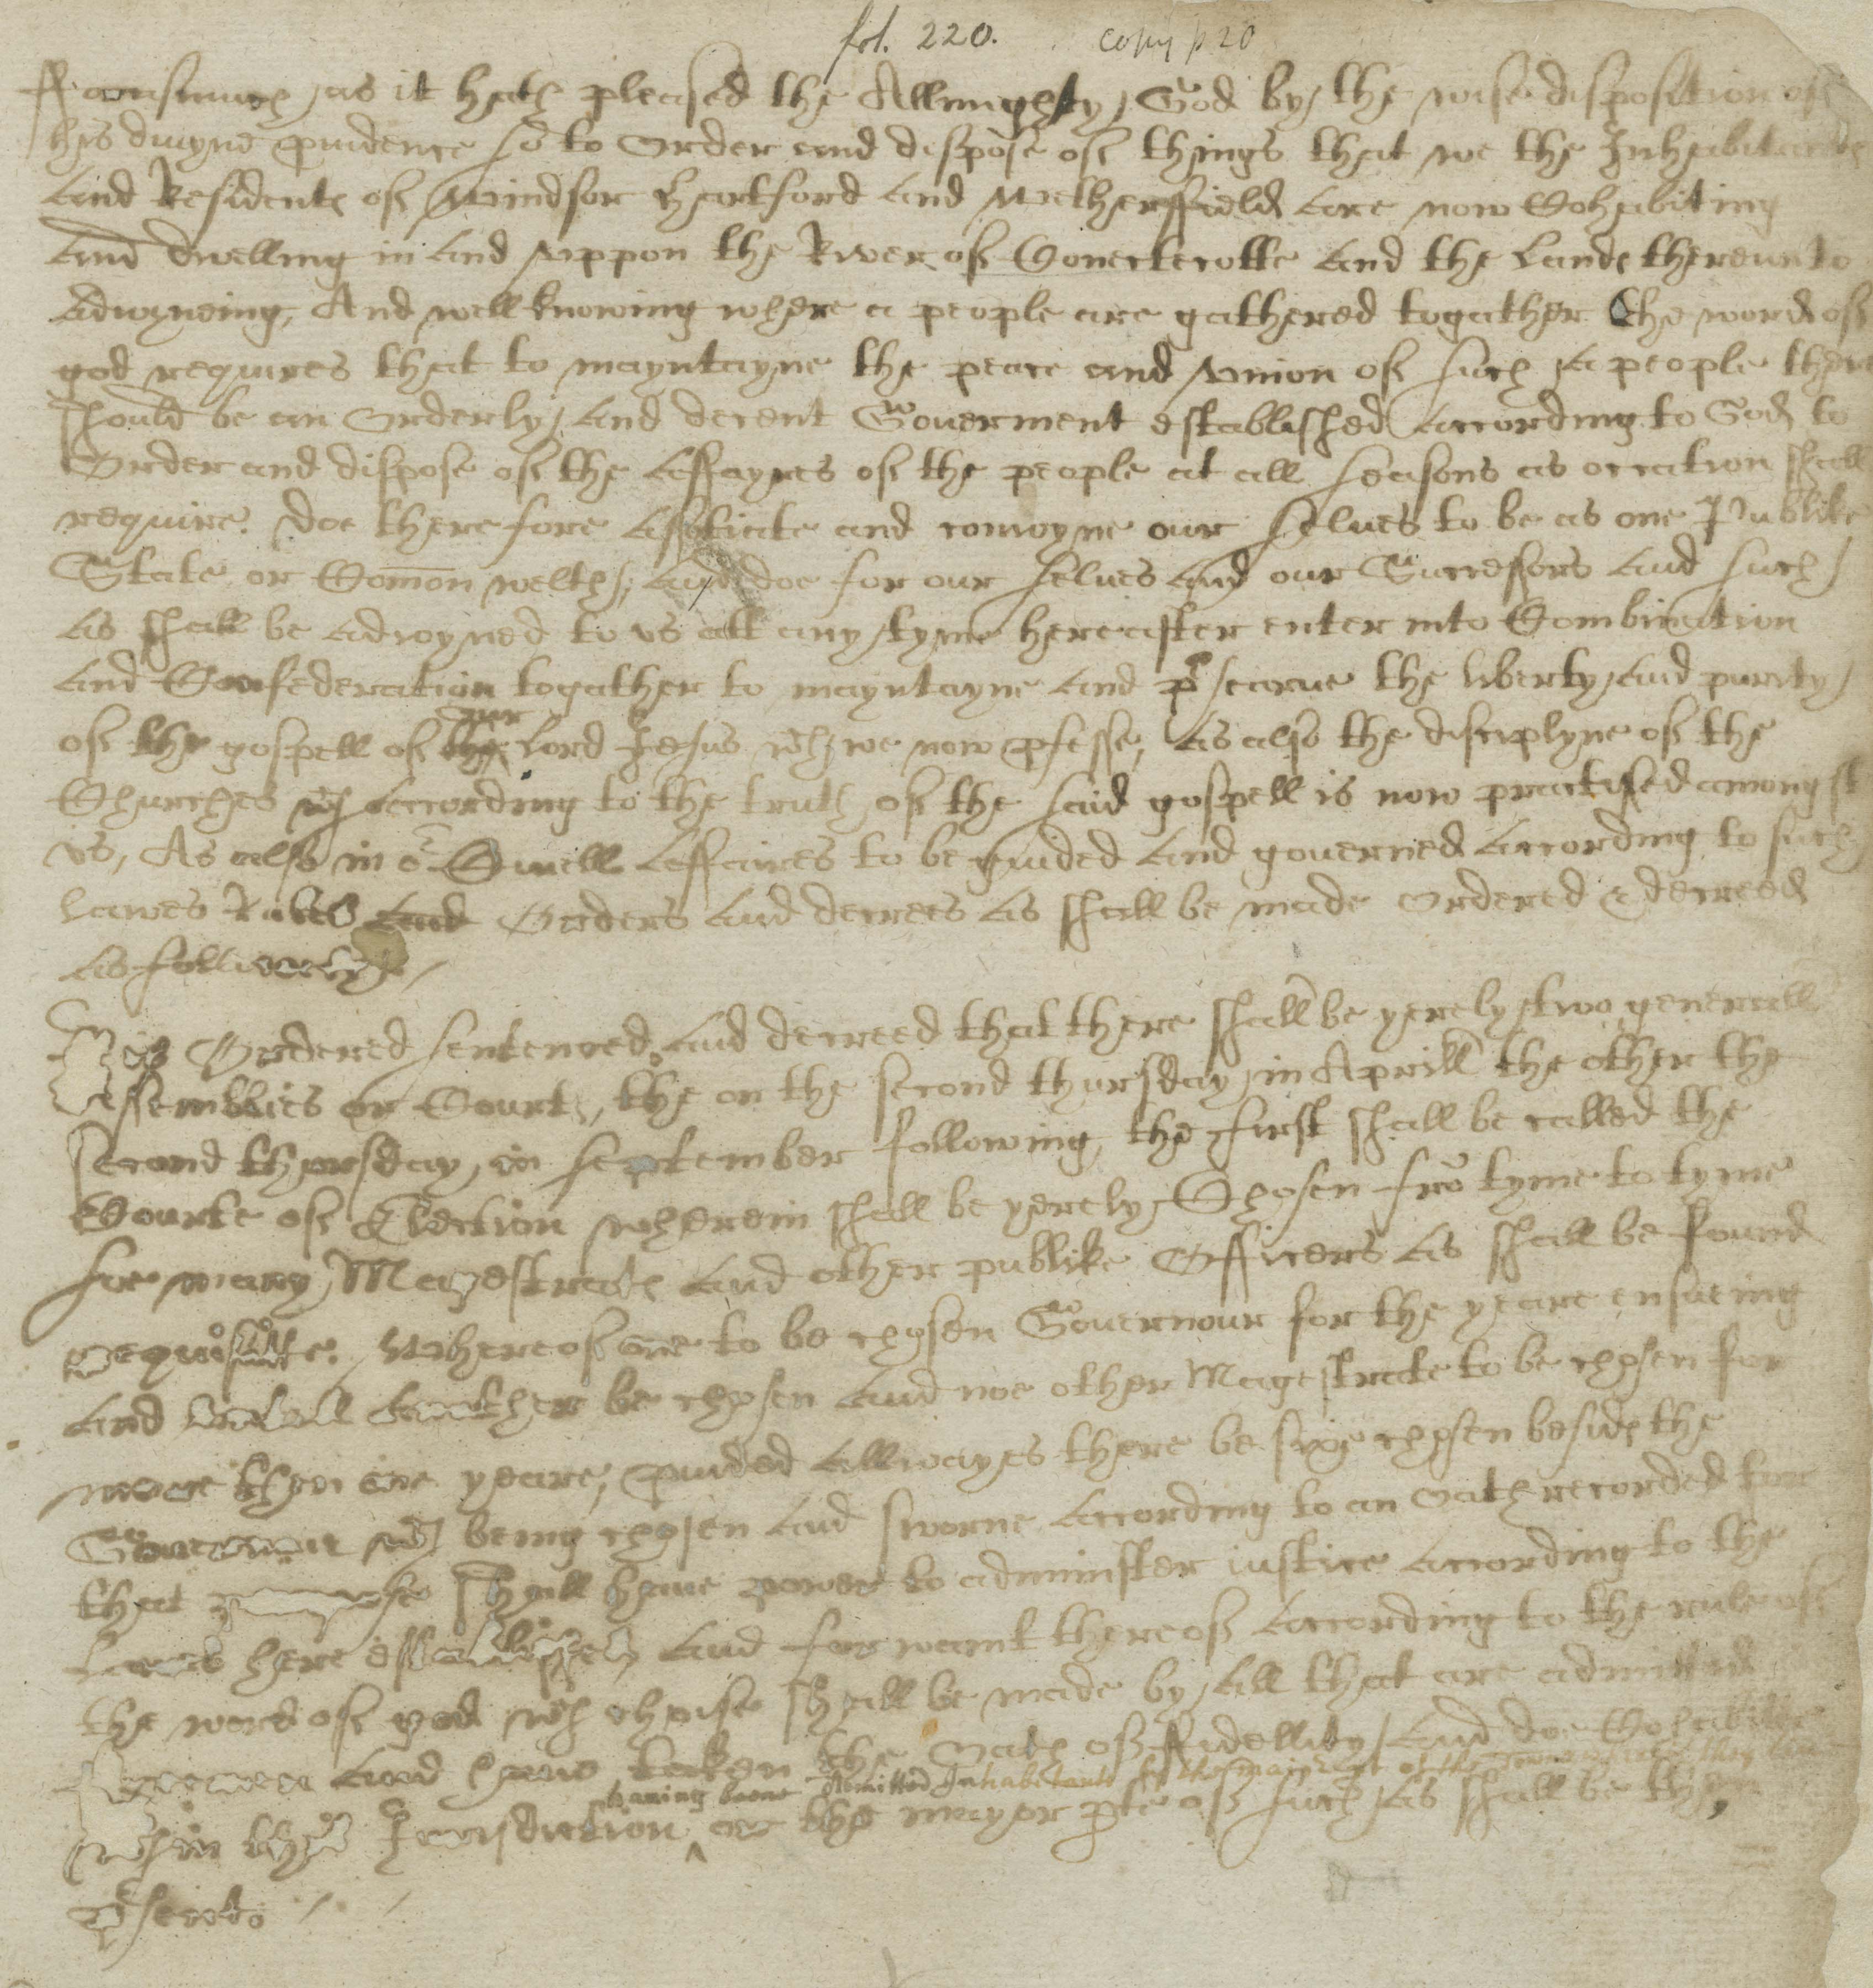 fol. 220. copy p 20
Forasmuch as it hath pleased the Allmighty God by the wise disposition of
his diuyne pruidence so to Order and dispose of things that we the Inhabitants
and Residents of Windsor Hartford and Wethersfield are now Cohabiting
and dwelling in and vppon the River of Conectecotte and the Lands thereunto
adioyneing; And well knowing where a people are gathered togather the word of
god requires that to mayntayne the peace and vnion of such a people there
should be an Orderly and decent Gouerment established according to God, to
Order and dispose of the affayres of the people at all seasons as occation shall
require; doe therefore assotiate and conioyne our selues to be as one Publike
State or Com̄on welth; and doe for our selues and our Successors and such
as shall be adioyned to vs att any tyme hereafter enter into Combination
and Confederation togather, to mayntayne and pr searue the liberty and purity
of the gospell of our Lord Jesus wch we now pfesse, as also the disciplyne of the
Churches wch according to the truth of the said gospell is now practised amongst
vs, As also in or Ciuell Affaires to be guided and gouerned according to such
Lawes Rules Orders and decrees as shall be made ordered & decreed
as followeth
It is Ordered sentenced and decreed that there shall be yerely two generall
Assemblies or Courts, the on the second thursday in Aprill the other the
second thursday in September following, the first shall be called the
Courte of Election wherein shall be yerely Chosen frō tyme to tyme
soe many Magestrats and other publike Officers as shall be found
requisitte. Whereof one to be chosen Gouernour for the yeare ensueing
and vntill another be chosen and noe other Magestrate to be chosen for
more then one yeare; pruided allwayes there be sixe chosen besids the
Gouernour wch being chosen and sworne according to an Oath recorded for
that purpose shall haue power to administer iustice according to the
Lawes here established and for want thereof according to the rule of
the word of god wch choise shall be made by all that are admitted
freemen and haue taken the Oath of Fidellity and doe Cohabitte
having beene Admitted Inhabitants by the maior part of the Towne where they live
wthin this Jurisdiction or the mayor prte of such as shall be then
prsent.